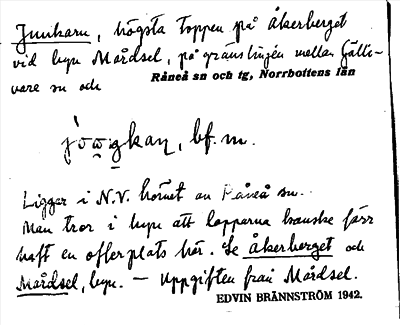 Junkarn, högsta toppen på Åkerberget
vid byn Mårdsel, på gränslinjen mellan Gälli-
vare sn och Råneå sn och tg, Norrbottens län
kan, bf. m.
Ligger i N.V. hörnet av Råneå sn.
Man tror i byn att lapparna kanske förr
haft en offerplats här. Se Åkerberget och
Mårdsel, byn. — Uppgiften från Mårdsel.
EDVIN BRÄNNSTRÖM 1942.